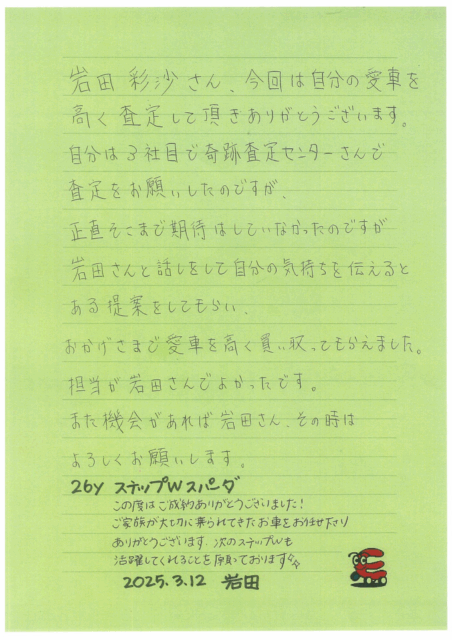 岩田 彩沙さん、今回は自分の愛車を
高く査定して頂きありがとうございます。
自分は3社目で奇跡査定センターさんで
査定をお願いしたのですが、
正直そこまで期待はしていなかったのですが
岩田さんと話しをして自分の気持ちを伝えると
ある提案をしてもらい、
おかげさまで愛車を高く買い収ってもらえました。
担当が岩田さんでよかったです。
また機会があれば岩田さん、その時は
よろしくお願いします。
26y ステップWスパーダ
この度はご成約ありがとうございました!
ご家族が大切に乗られてきたお車をお任せ下さり
ありがとうございます。次のステップWも
活躍してくれることを願っております☆
2025.3.12 岩田